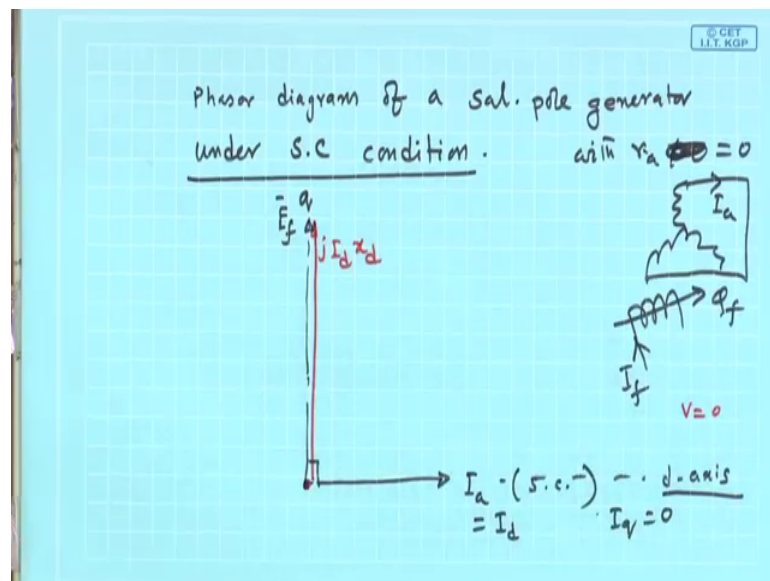 © CET
I.I.T. KGP
Phasor diagram of a sal. pole generator
under S.C condition. with ra = 0
q
Ēf
j Id xd
Ia
Φf
If
V = 0
Ia - (S.C.-) - . d-axis
= Id Iq = 0